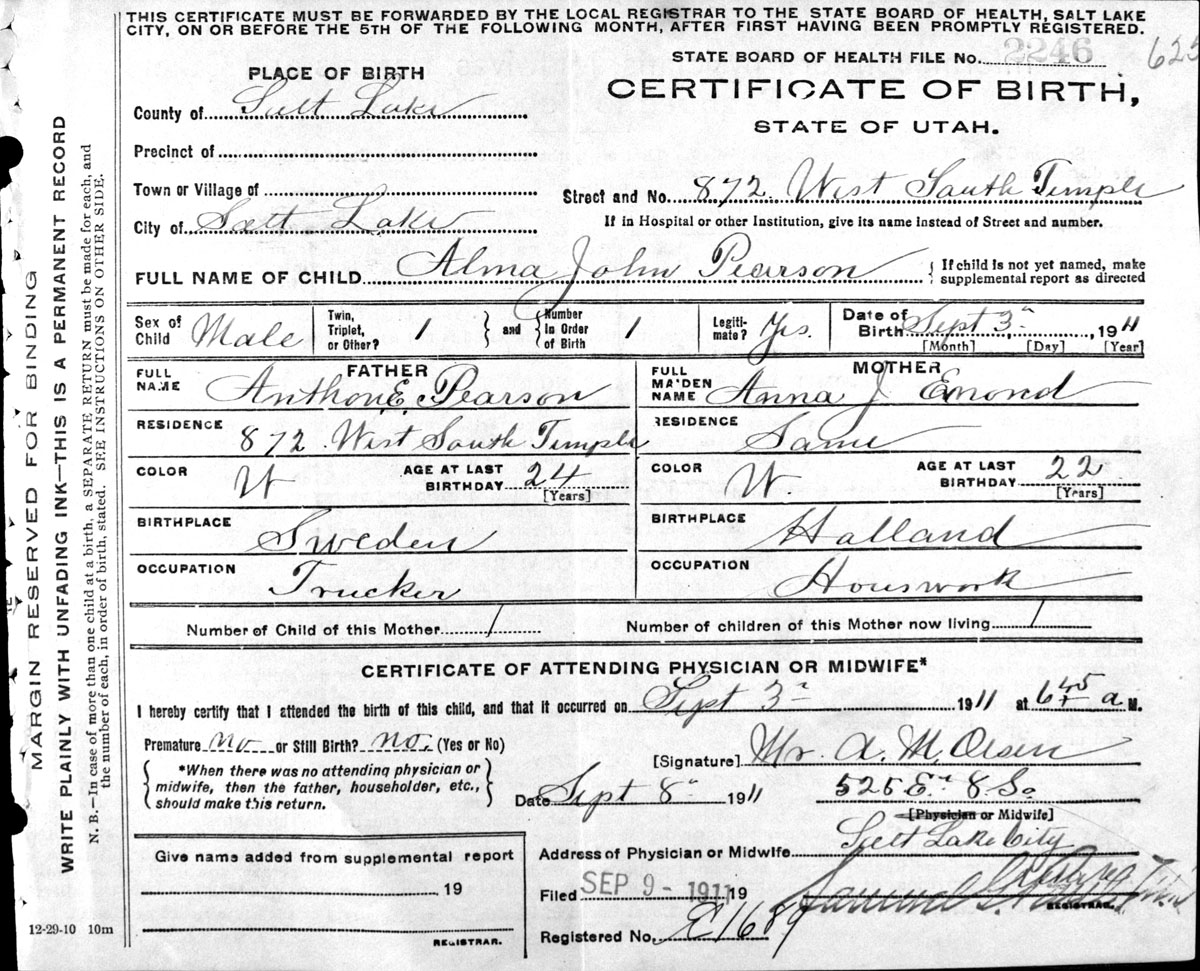 THIS CERTIFICATE MUST BE FORWARDED BY THE LOCAL REGISTRAR TO THE STATE BOARD OF HEALTH, SALT LAKE
CITY, ON OR BEFORE THE 5TH OF THE FOLLOWING MONTH, AFTER FIRST HAVING BEEN PROMPTLY REGISTERED.
STATE BOARD OF HEALTH FILE No. 2246
625
PLACE OF BIRTH
CERTIFICATE OF BIRTH,
County of Salt Lake
STATE OF UTAH.
Precinct of
Town or Village of
Street and No. 872 West South Temple
City of Salt Lake
If in Hospital or other Institution, give its name instead of Street and number.
FULL NAME OF CHILD Alma John Pearson { If child is not yet named, make
supplemental report as directed
Sex of Child Male Twin, Triplet, or Other? 1 and Number in Order of Birth 1 Legiti-mate? Yes. Date of Birth Sept 3d, 1911
[Month] [Day] [Year]
FATHER MOTHER
FULL NAME Anthon E. Pearson FULL MAIDEN NAME Anna J Emond
RESIDENCE 872 West South Temple RESIDENCE Same
COLOR W AGE AT LAST BIRTHDAY 24 [Years] COLOR W. AGE AT LAST BIRTHDAY 22 [Years]
BIRTHPLACE Sweden BIRTHPLACE Holland
OCCUPATION Trucker OCCUPATION Houswork
Number of Child of this Mother 1 Number of children of this Mother now living 1
CERTIFICATE OF ATTENDING PHYSICIAN OR MIDWIFE*
I hereby certify that I attended the birth of this child, and that it occurred on Sept 3d 1911 at 6 45 a M.
Premature no or Still Birth? no. (Yes or No)
[Signature] A. M. Olsen
*When there was no attending physician or
midwife, then the father, householder, etc.,
should make this return.
Date Sept 8 1911 525 E 8 So
[Physician or Midwife]
Give name added from supplemental report
Address of Physician or Midwife Salt Lake City
19
Filed SEP 9 - 1911 19
REGISTRAR.
Registered No. E1689
REGISTRAR.
12-29-10 10m
MARGIN RESERVED FOR BINDING
WRITE PLAINLY WITH UNFADING INK—THIS IS A PERMANENT RECORD
N. B.—In case of more than one child at a birth, a SEPARATE RETURN must be made for each, and
the number of each, in order of birth, stated. SEE INSTRUCTIONS ON OTHER SIDE.